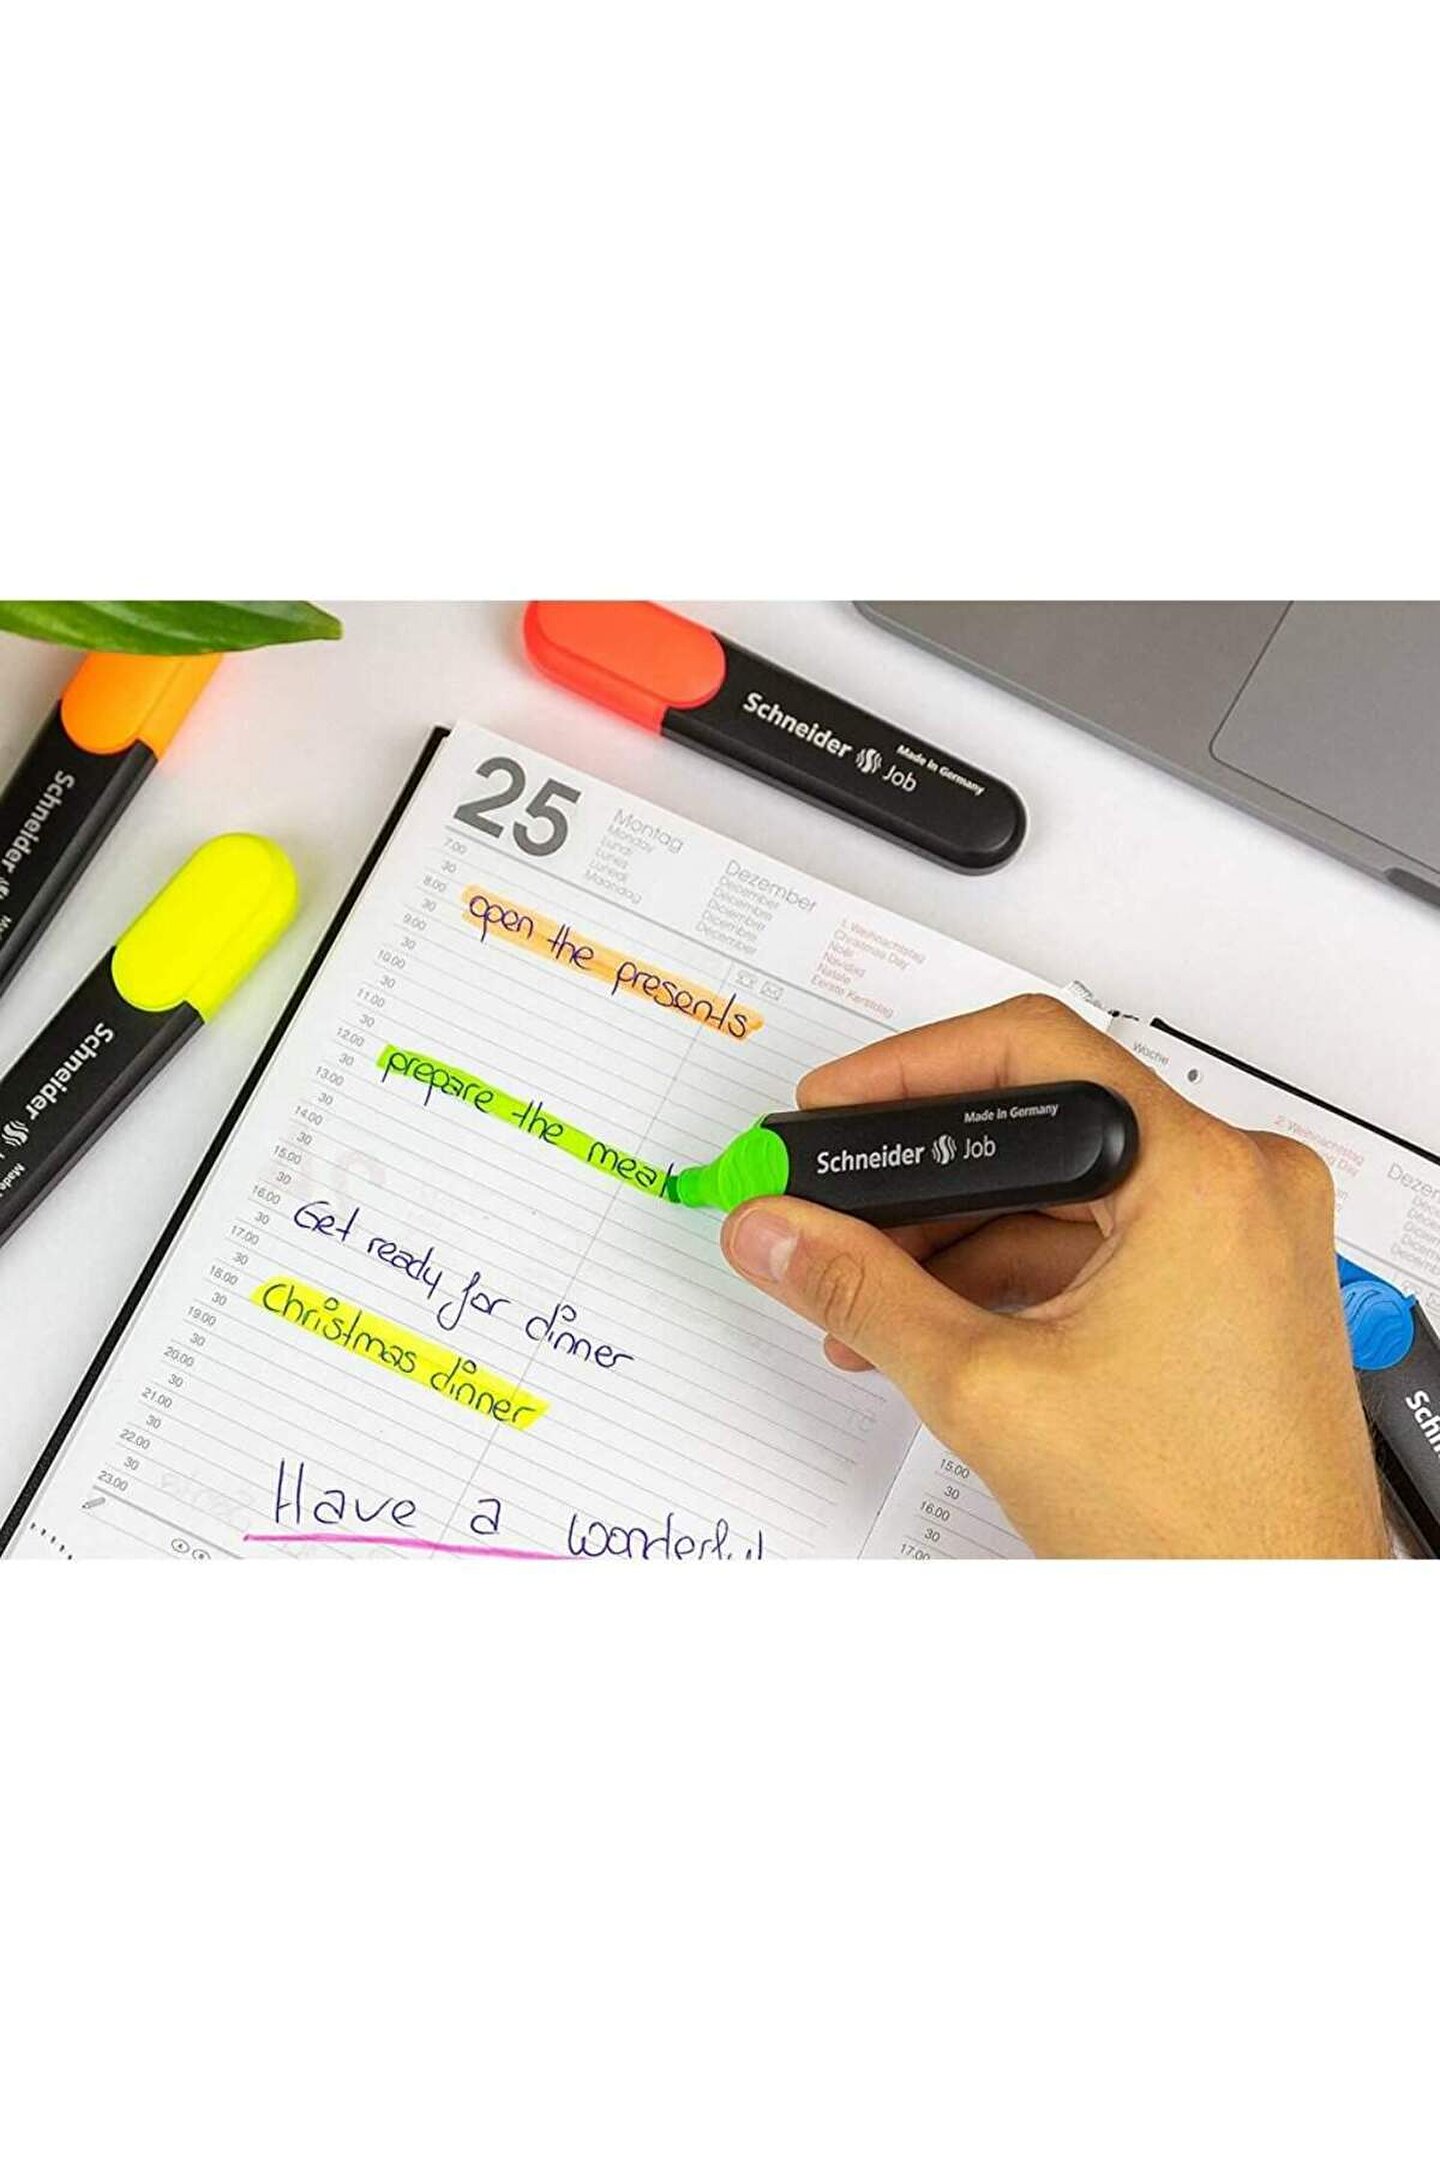 Schneider Job
Made in Germany
Schneider
Schneider
Made
25
Montag
Monday
Lundi
Lunes
Lunedì
Maandag
Dezember
December
Décembre
Diciembre
Dicembre
December
1. Weihnachtstag
Christmas Day
Noël
Navidad
Natale
Eerste Kerstdag
7.00
30
8.00
30
9.00
30
10.00
30
11.00
30
12.00
30
13.00
30
14.00
30
15.00
30
16.00
30
17.00
30
18.00
30
19.00
30
20.00
30
21.00
30
22.00
30
23.00
open the presents
prepare the meal
Get ready for dinner
Christmas dinner
Have a wonderful
Made in Germany
Schneider Job
Woche
2. Weihnachtstag
Day
15.00
30
16.00
30
17.00